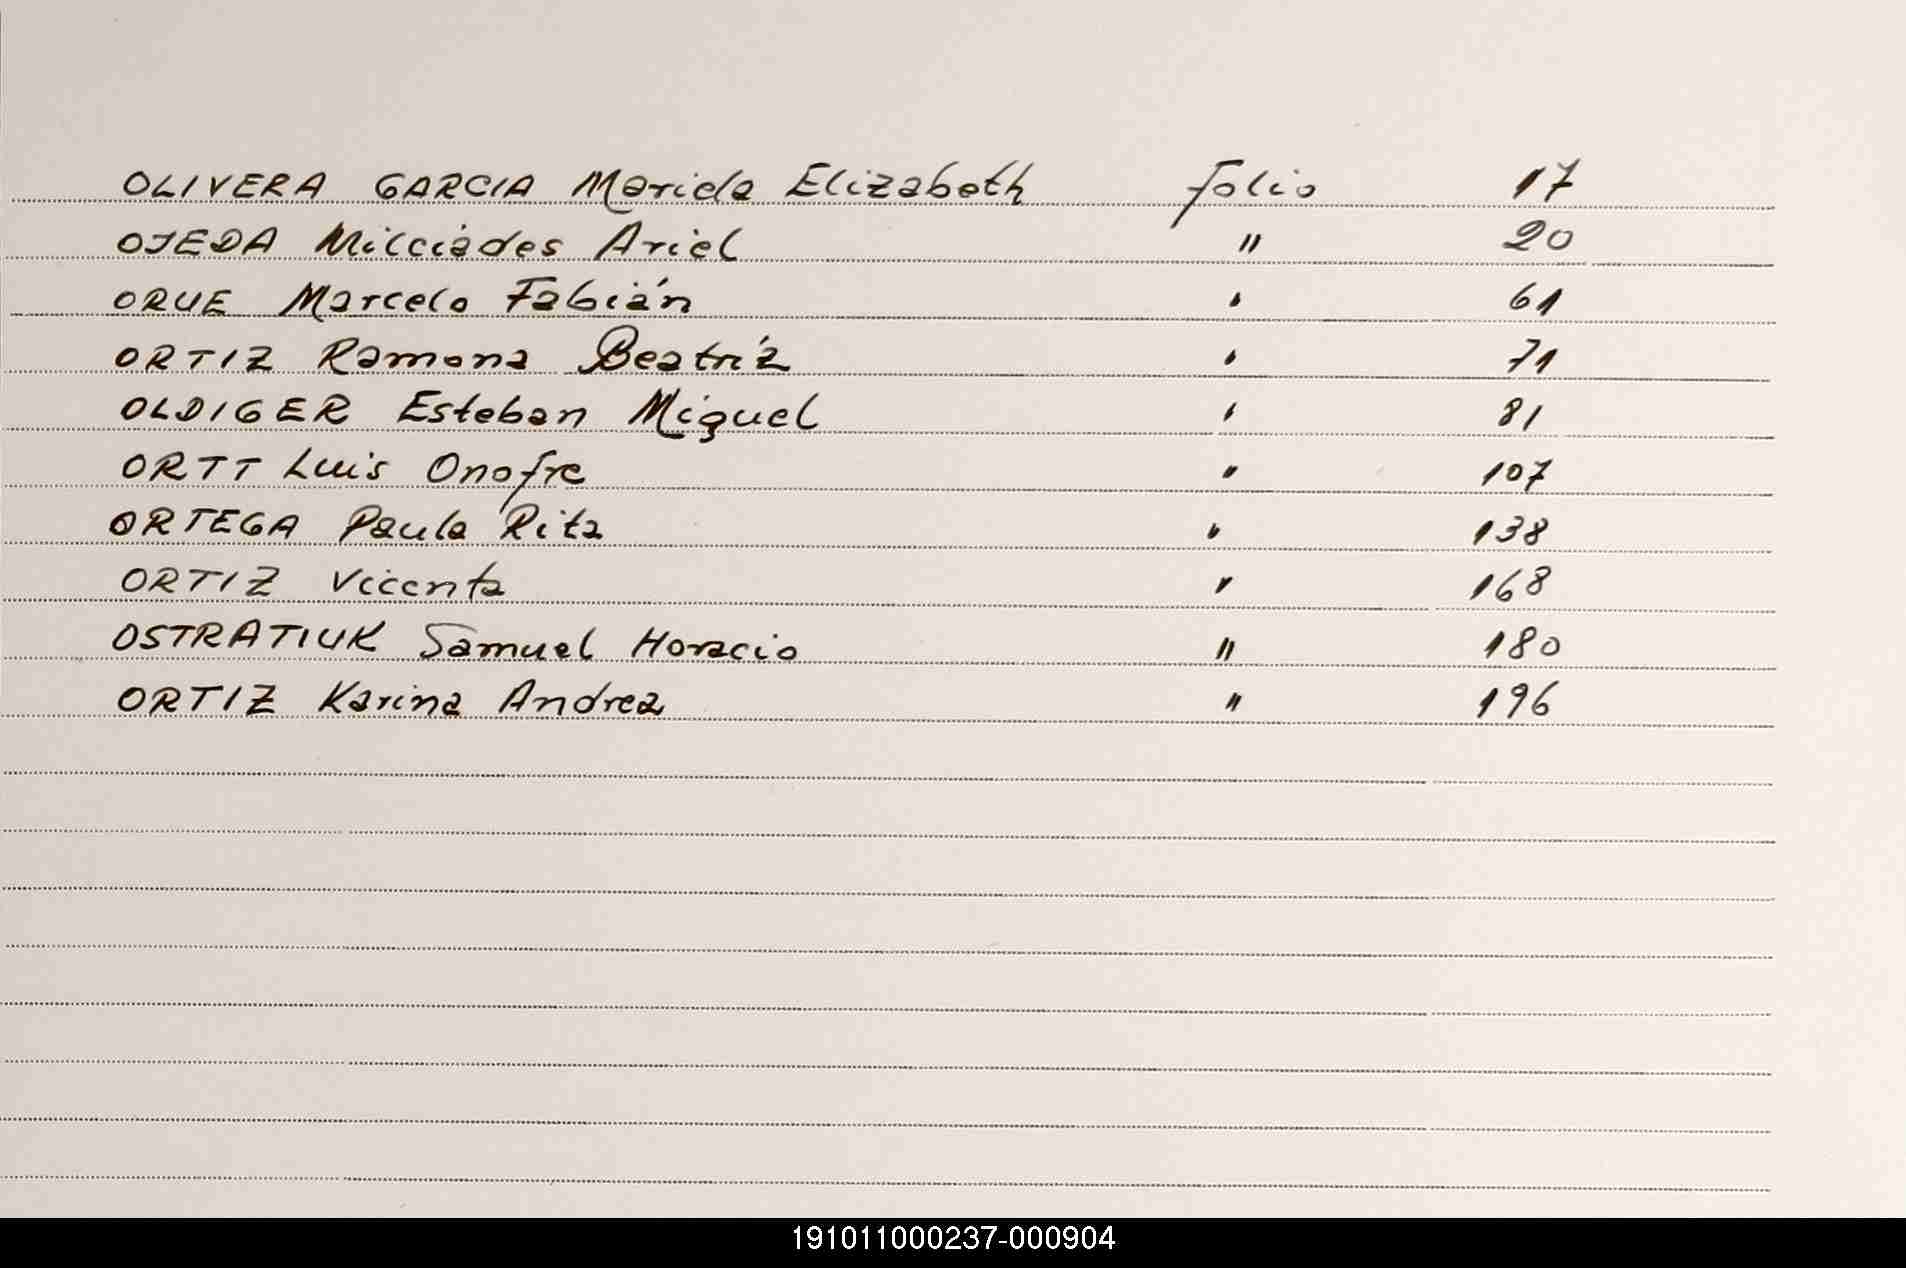 OLIVERA GARCIA Mariela Elizabeth folio 17
OJEDA Milciádes Ariel " 20
ORUE Marcelo Fabián ' 61
ORTIZ Ramona Beatriz ' 71
OLDIGER Esteban Miguel ' 81
ORTT Luis Onofre " 107
ORTEGA Paula Rita " 138
ORTIZ Vicenta " 168
OSTRATIUK Samuel Horacio " 180
ORTIZ Karina Andrea " 196
191011000237-000904